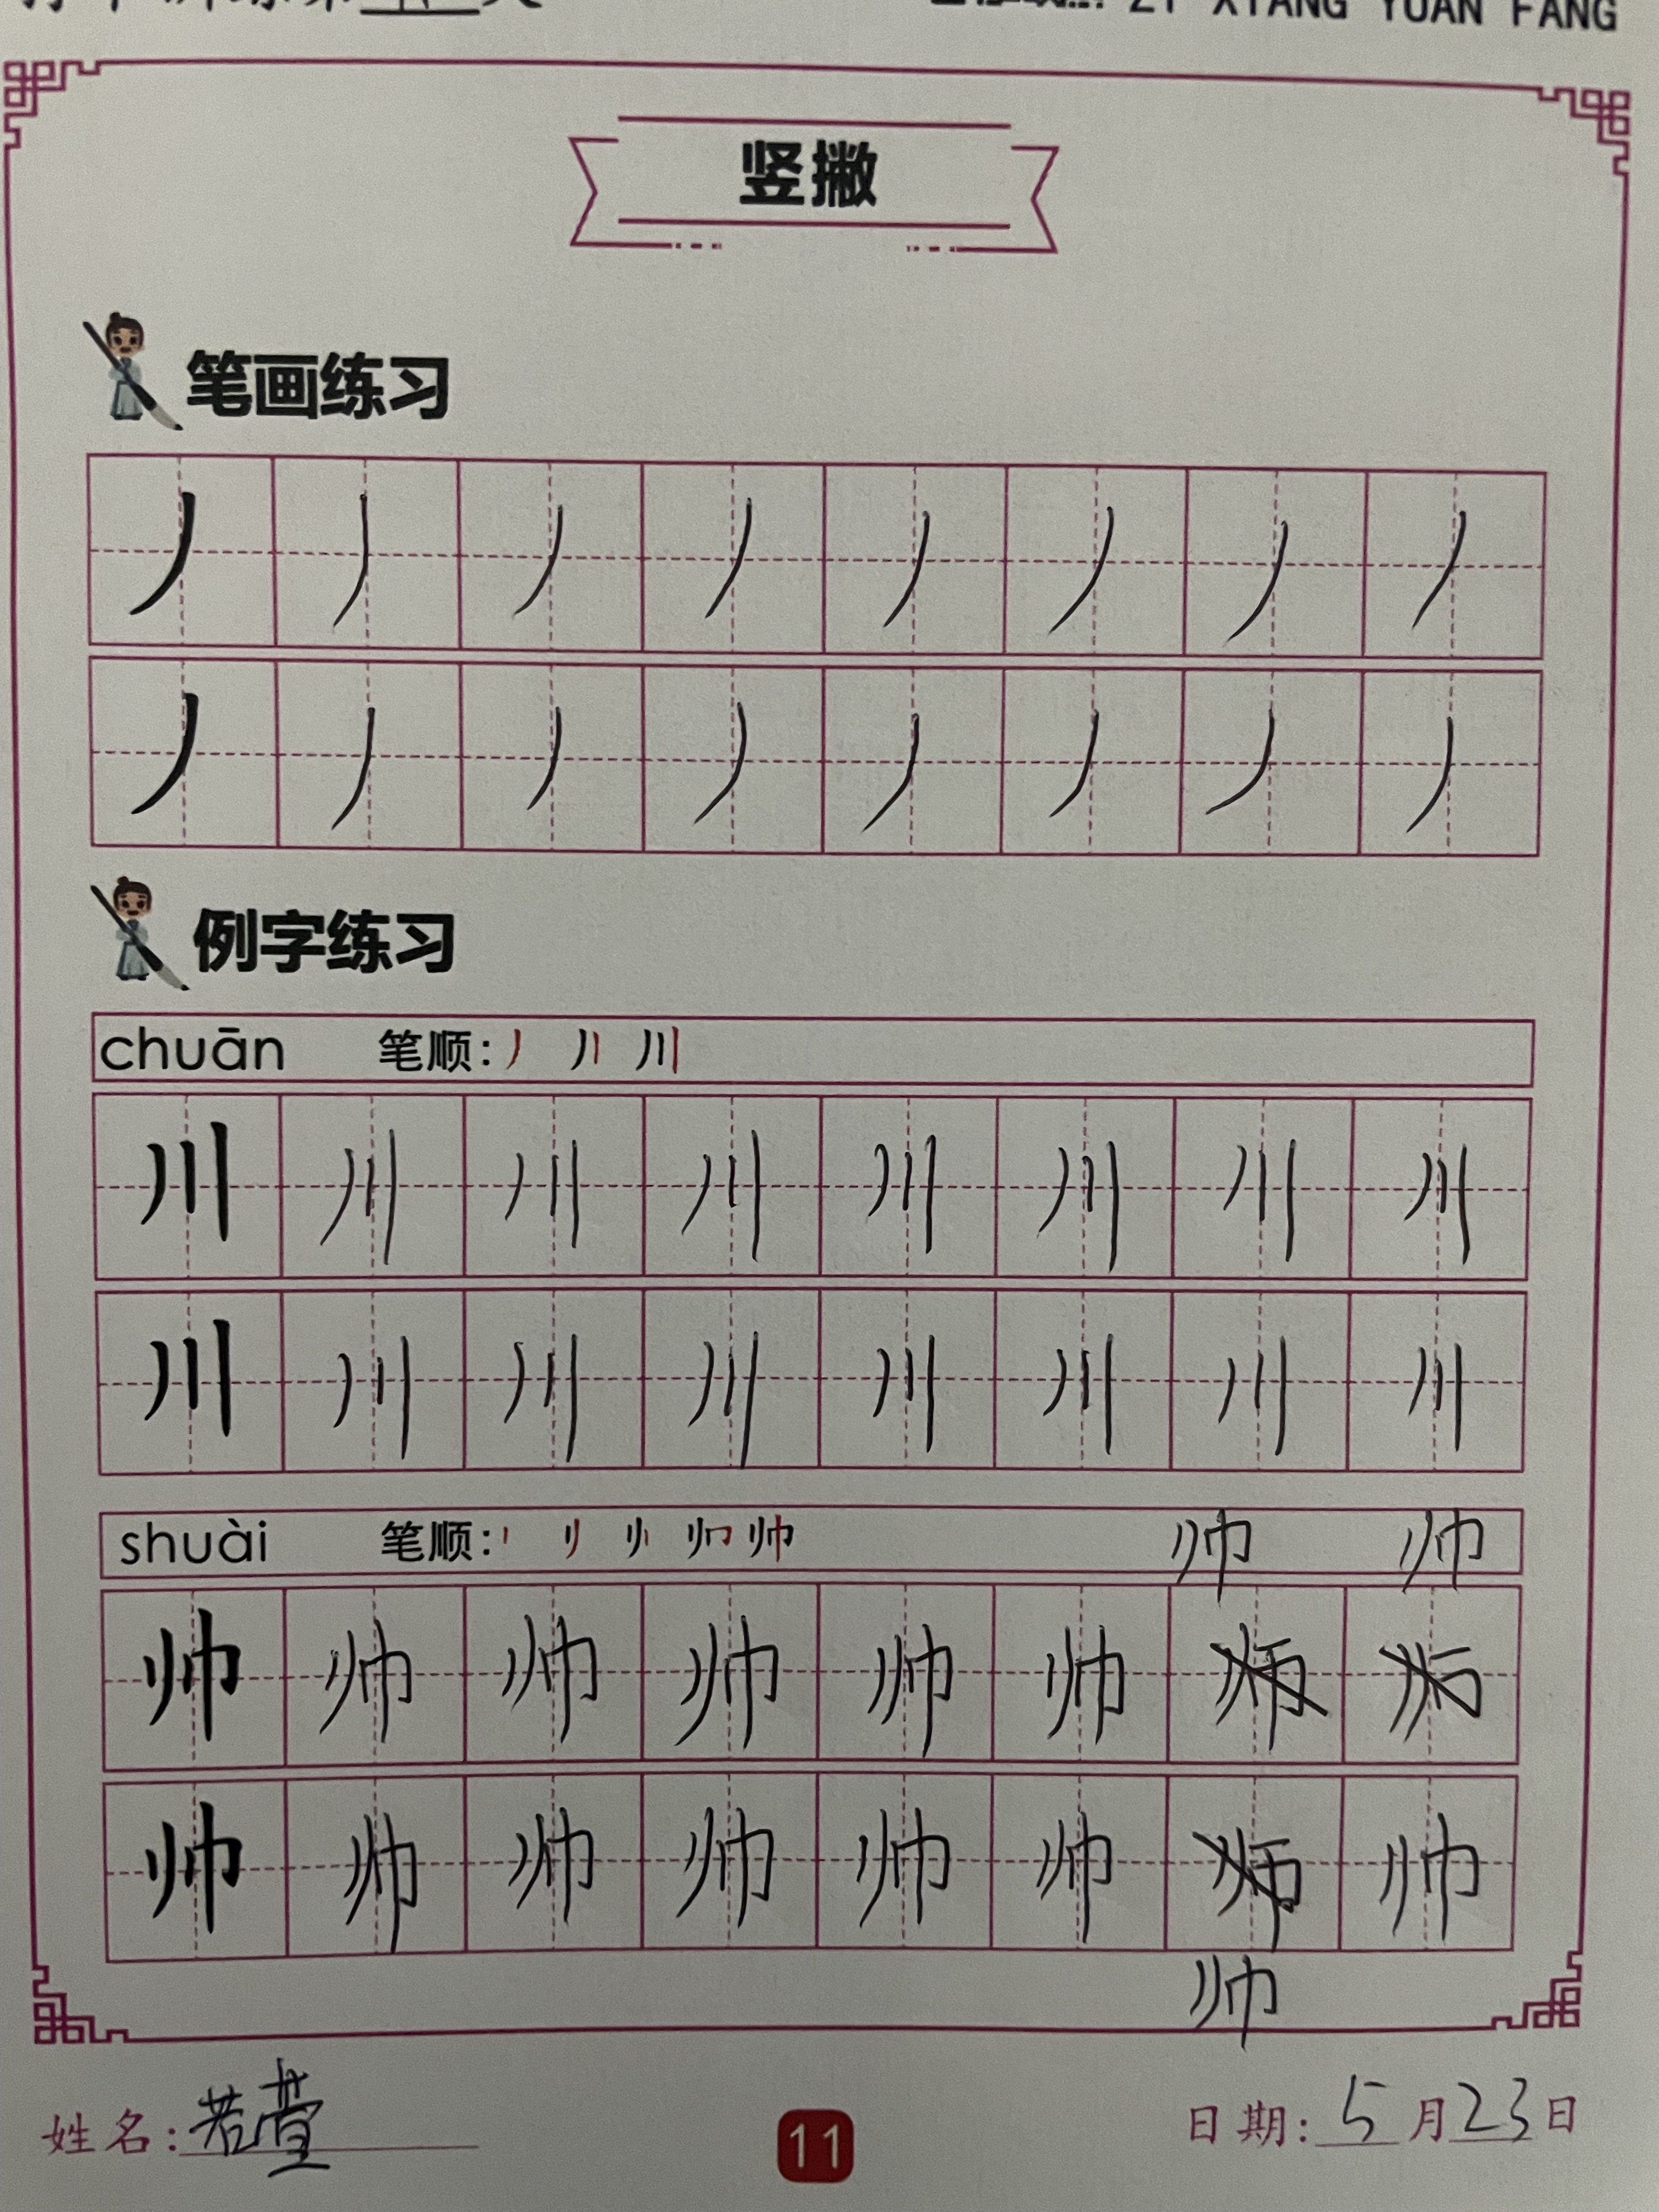 ZI XIANG YUAN FANG
竖撇
笔画练习
丿 丿 丿 丿 丿 丿 丿 丿
丿 丿 丿 丿 丿 丿 丿 丿
例字练习
chuān 笔顺:
川 川 川 川 川 川 川 川
川 川 川 川 川 川 川 川
shuài 笔顺: 帅 帅
帅 帅 帅 帅 帅 帅 师
帅 帅 帅 帅 帅 帅 师 帅
帅
姓名:若萱 11 日期:5月23日